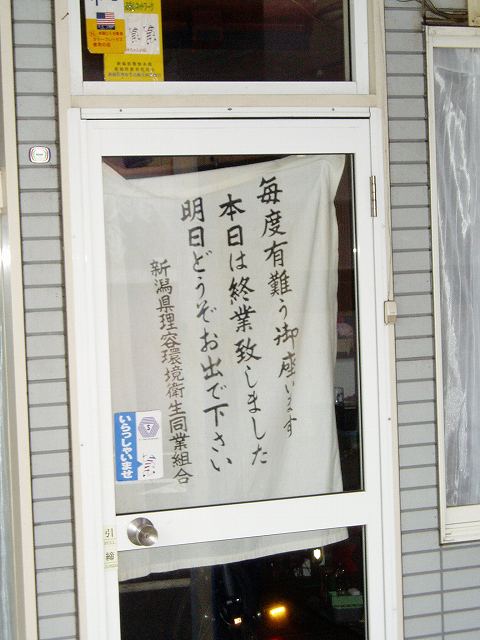 毎度有難う御座います
本日は終業致しました
明日どうぞお出で下さい
新潟県理容環境衛生同業組合
いらっしゃいませ
引
締